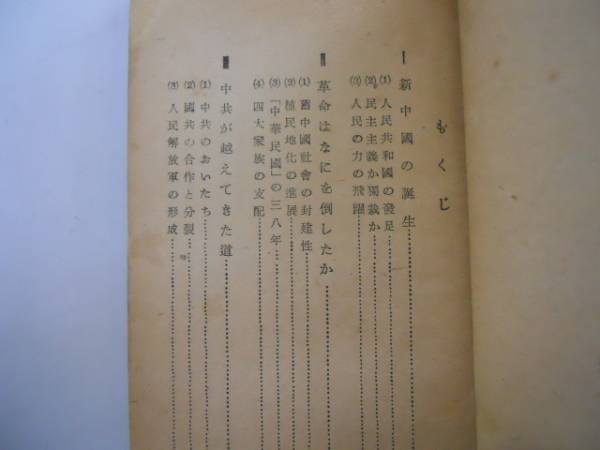 もくじ
Ⅰ 新中國の誕生
(1) 人民共和國の發足
(2) 民主主義か獨裁か
(3) 人民の力の飛躍
Ⅱ 革命はなにを倒したか
(1) 舊中國社會の封建性
(2) 植民地化の進展
(3) 「中華民國」の三八年
(4) 四大家族の支配
Ⅲ 中共が越えてきた道
(1) 中共のおいたち
(2) 國共の合作と分裂
(3) 人民解放軍の形成